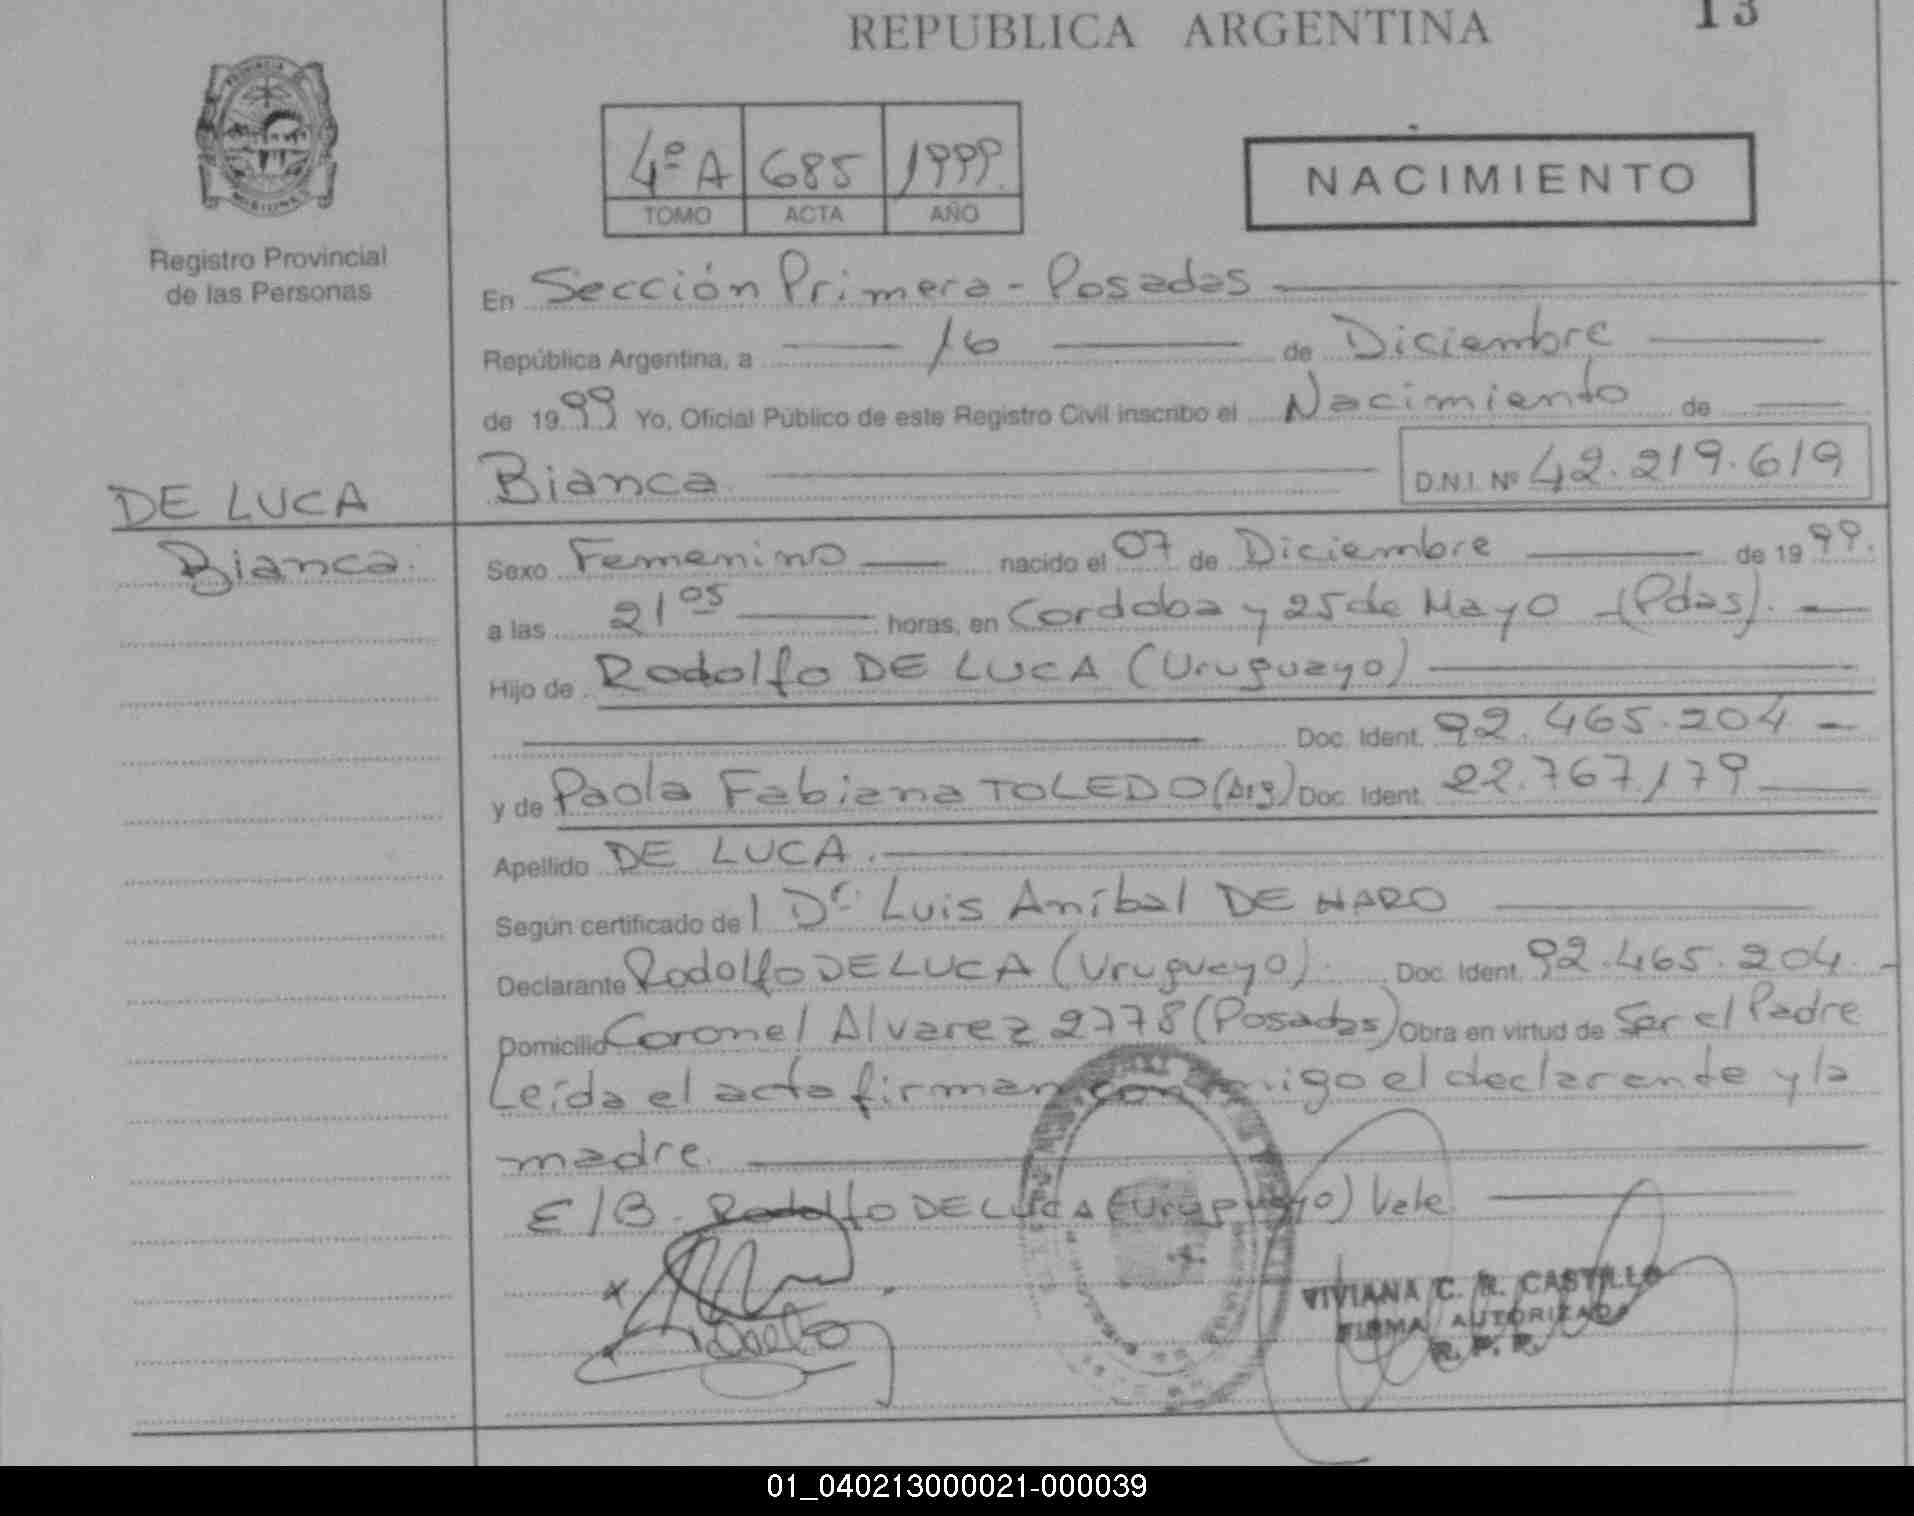 REPUBLICA ARGENTINA 13
4º A 685 1999
TOMO ACTA AÑO
NACIMIENTO
Registro Provincial
de las Personas
En Sección Primera - Posadas
República Argentina, a 16 de Diciembre
de 1999 Yo, Oficial Público de este Registro Civil inscribo el Nacimiento de
Bianca D.N.I. Nº 42.219.619
DE LUCA
Bianca.
Sexo Femenino nacido el 07 de Diciembre de 1999.
a las 21 05 horas, en Cordoba y 25 de Mayo (Pdas).
Hijo de Rodolfo DE LUCA (Uruguayo)
Doc. Ident. 92.465.204
y de Paola Fabiana TOLEDO (Arg) Doc. Ident. 22.767.179
Apellido DE LUCA.
Según certificado del Dr. Luis Aníbal DE HARO
Declarante Rodolfo DE LUCA (Uruguayo). Doc. Ident. 92.465.204.
Domicilio Coronel Alvarez 2778 (Posadas) Obra en virtud de Ser el Padre
Leída el acta firman conmigo el declarante y la
madre.
E/B. Rodolfo DE LUCA (Uruguayo) Vale
VIVIANA C. R. CASTILLO
FIRMA AUTORIZADA
R. P. P.
01_040213000021-000039